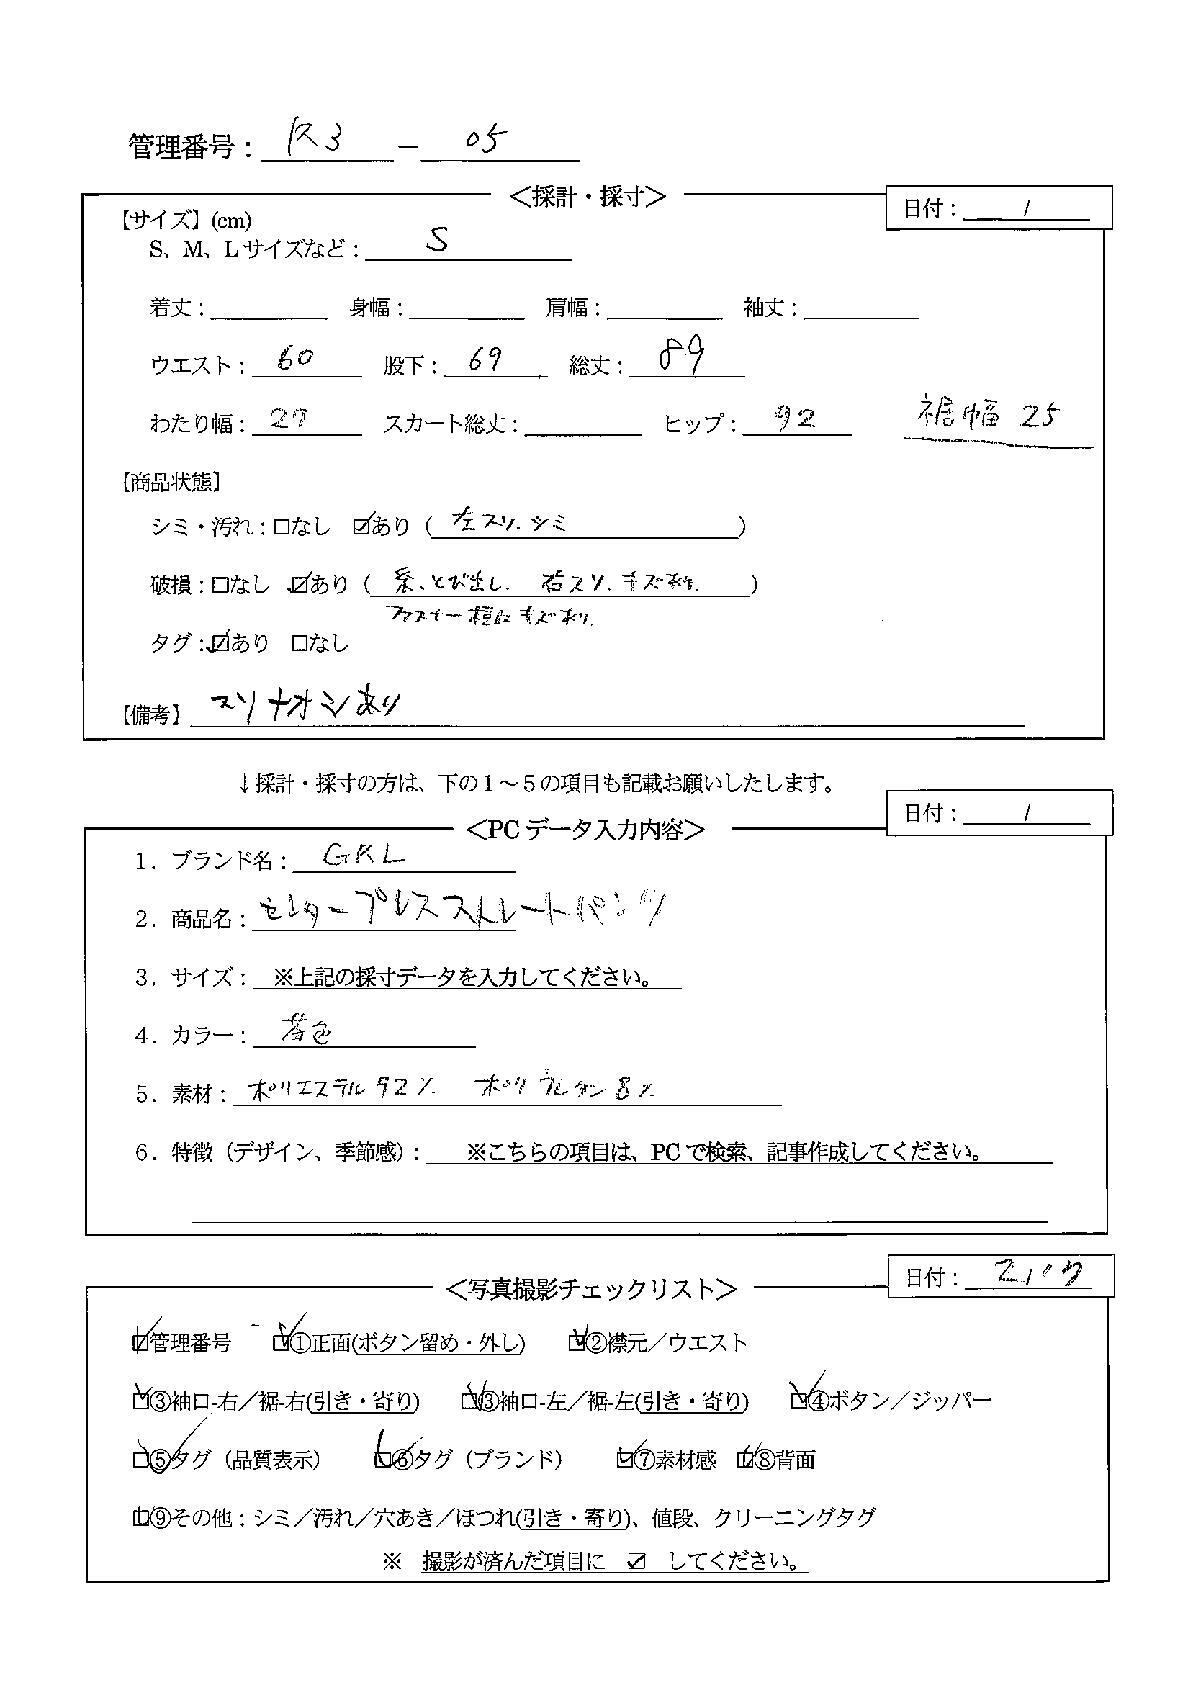 管理番号： R3 － 05
＜採計・採寸＞
日付： /
【サイズ】(cm)
S、M、Lサイズなど： S
着丈： 身幅： 肩幅： 袖丈：
ウエスト： 60 股下： 69 総丈： 89
わたり幅： 27 スカート総丈： ヒップ： 92 裾幅 25
【商品状態】
シミ・汚れ：□なし ☑あり（ 左スソ.シミ ）
破損：□なし ☑あり（ 糸、とび出し. 右スソ.キズあり. ）
ファスナー横にキズあり.
タグ：☑あり □なし
【備考】 スソナオシあり
↓採計・採寸の方は、下の1～5の項目も記載お願いしたします。
日付： /
＜PCデータ入力内容＞
1．ブランド名： GKL
2．商品名： センタープレスストレートパンツ
3．サイズ： ※上記の採寸データを入力してください。
4．カラー： 茶色
5．素材： ポリエステル92% ポリウレタン8%
6．特徴（デザイン、季節感）： ※こちらの項目は、PCで検索、記事作成してください。
日付： 2/17
＜写真撮影チェックリスト＞
☑管理番号 ☑①正面(ボタン留め・外し) ☑②襟元／ウエスト
☑③袖口-右／裾-右(引き・寄り) ☑③袖口-左／裾-左(引き・寄り) ☑④ボタン／ジッパー
☑⑤タグ（品質表示） ☑⑥タグ（ブランド） ☑⑦素材感 ☑⑧背面
□⑨その他：シミ／汚れ／穴あき／ほつれ(引き・寄り)、値段、クリーニングタグ
※ 撮影が済んだ項目に ☑ してください。